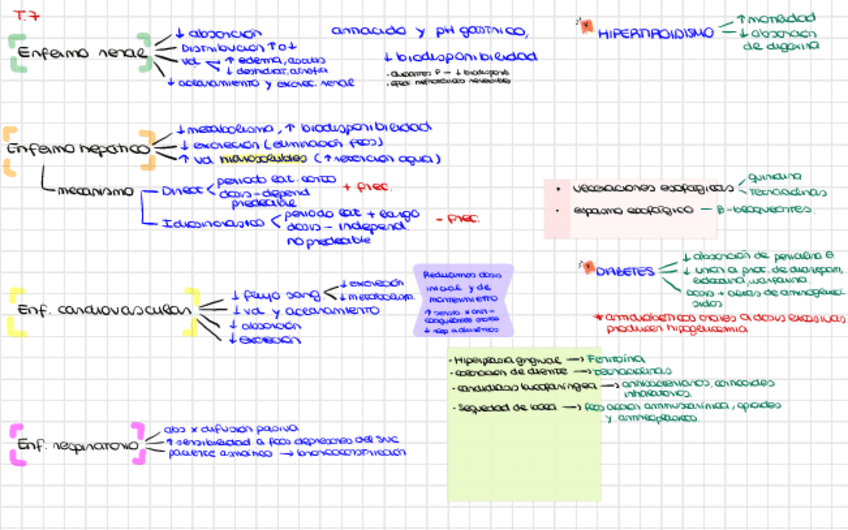 T.7
Enfermo renal
↓ absorción
Distribución ↑ o ↓
Vd ↑ edema, ascitis
↓ deshidrat, atrofia
↓ aclaramiento y excrec. renal
antiácido y pH gástrico,
↓ biodisponibilidad
HIPERTIROIDISMO
↑ motilidad
↓ absorción
de digoxina
Enfermo hepático
↓ metabolismo, ↑ biodisponibilidad
↓ excreción (eliminación fcos)
↑ Vd hidrosolubles (↑ retención agua)
mecanismo
Direct
periodo lat. corto
dosis-depend
predecible
+ frec.
Idiosincrásico
periodo lat + largo
dosis - independ.
no predecible
- frec.
• Ulceraciones esofágicas
quinidina
Tetraciclinas
• espasmo esofágico — β-bloqueantes.
Enf. cardiovascular
↓ flujo sang
↓ excreción
↓ metabolism.
↓ Vd y aclaramiento
↓ absorción
↓ excreción
Reducimos dosis
inicial y de
mantenimiento
DIABETES
↓ absorción de penicilina G
↓ unión a prot. de diazepam,
lidocaína, warfarina
* antidiabéticos orales a dosis excesivas
producen hipoglucemia
· Hiperplasia gingival → Fenitoína
· coloración de diente → tetraciclinas
· candidiasis bucofaríngea → antibacterianos, corticoides
inhalatorios.
· Sequedad de boca → fcos acción antimuscarínica, opioides
y antineoplásicos.
Enf. respiratorio
abs x difusión pasiva
↑ sensibilidad a fcos depresores del SNC
paciente asmático → broncoconstricción